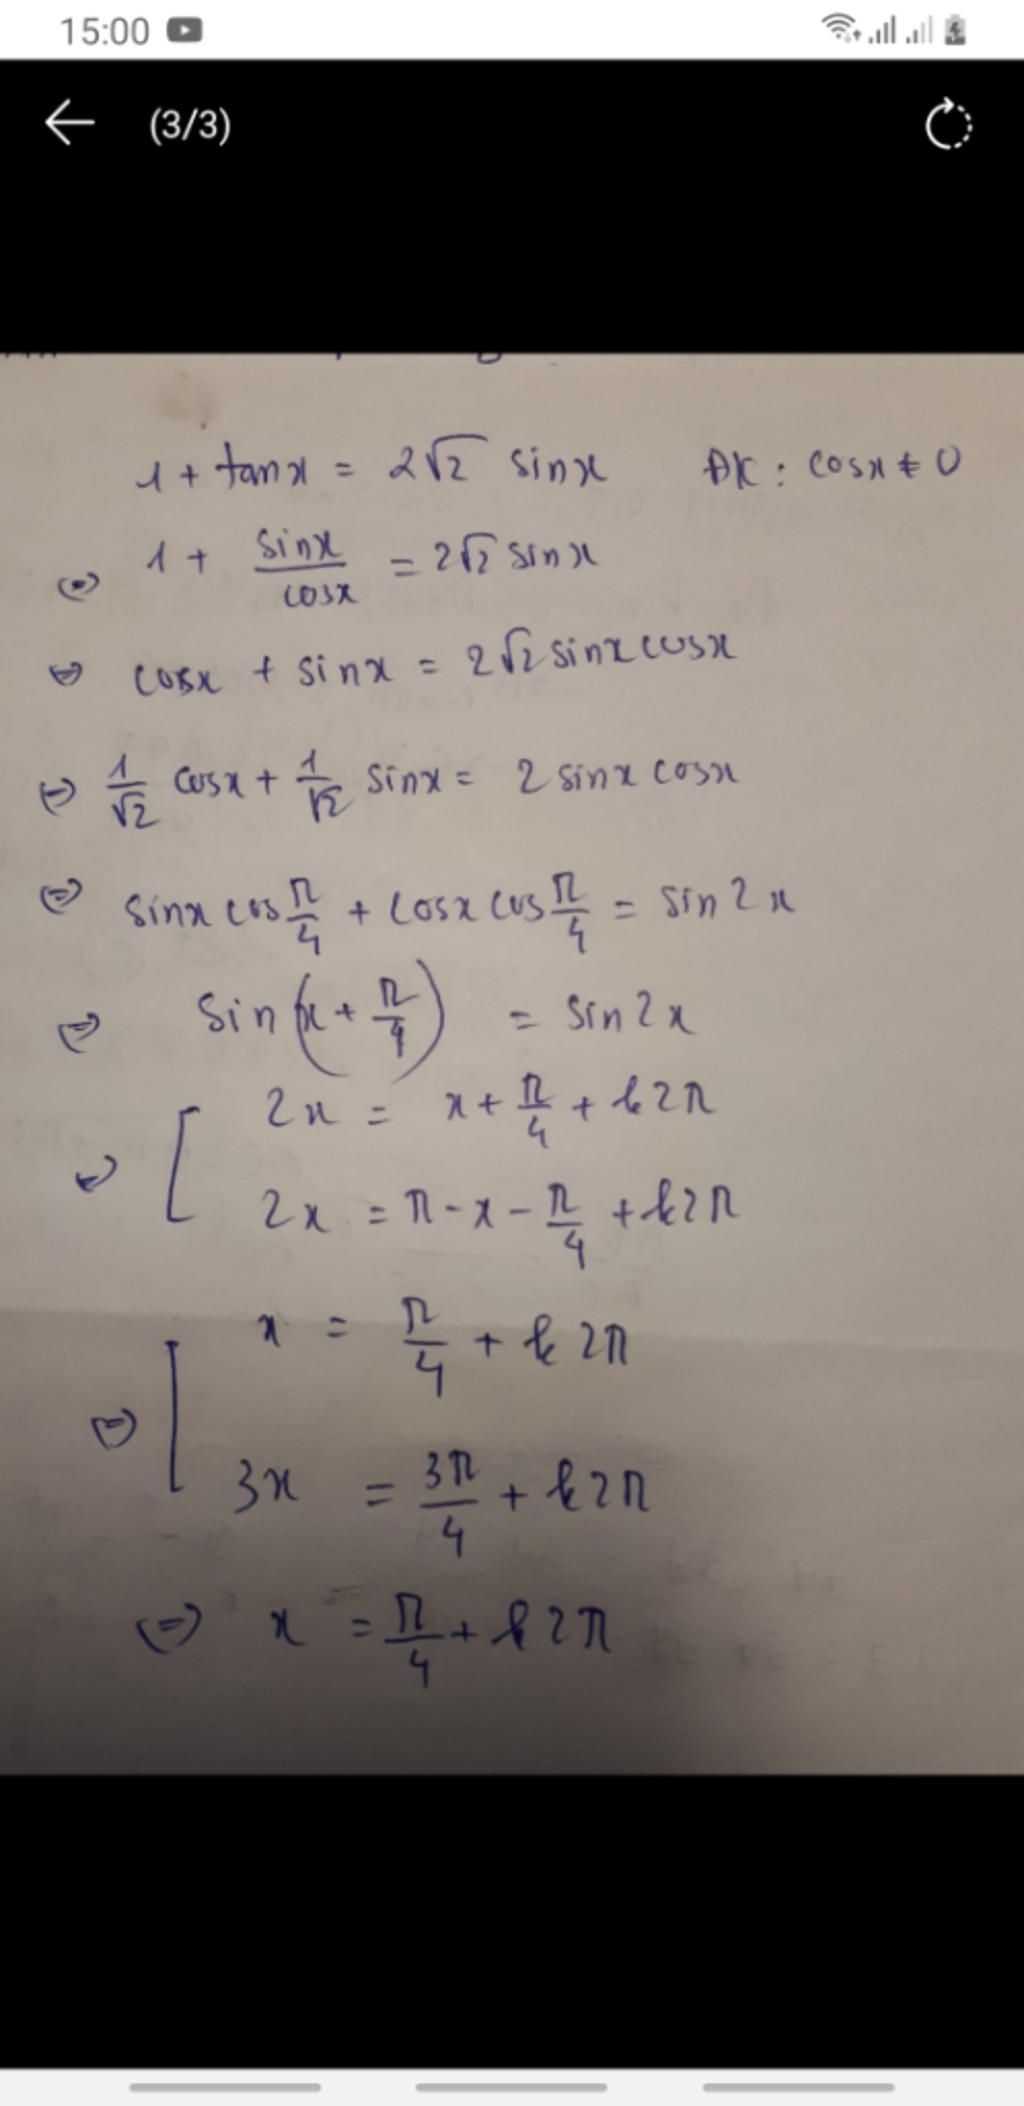 15:00
(3/3)
1 + tanx = 2√2 sinx ĐK : cosx ≠ 0
⇔ 1 + sinx/cosx = 2√2 sinx
⇔ cosx + sinx = 2√2 sinx cosx
⇔ 1/√2 cosx + 1/√2 sinx = 2 sinx cosx
⇔ sinx cos π/4 + cosx cos π/4 = sin 2x
⇔ sin(x + π/4) = sin 2x
⇔ [ 2x = x + π/4 + k2π
2x = π - x - π/4 + k2π
⇔ [ x = π/4 + k2π
3x = 3π/4 + k2π
⇔ x = π/4 + k2π